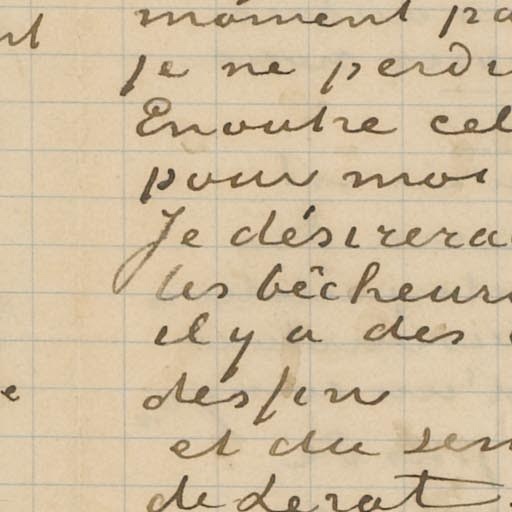 nt
moment pa
je ne perdr
En outre cel
pour moi
Je désirerai
les bêcheurs
il y a des
e
des
et du sen
de Lerat